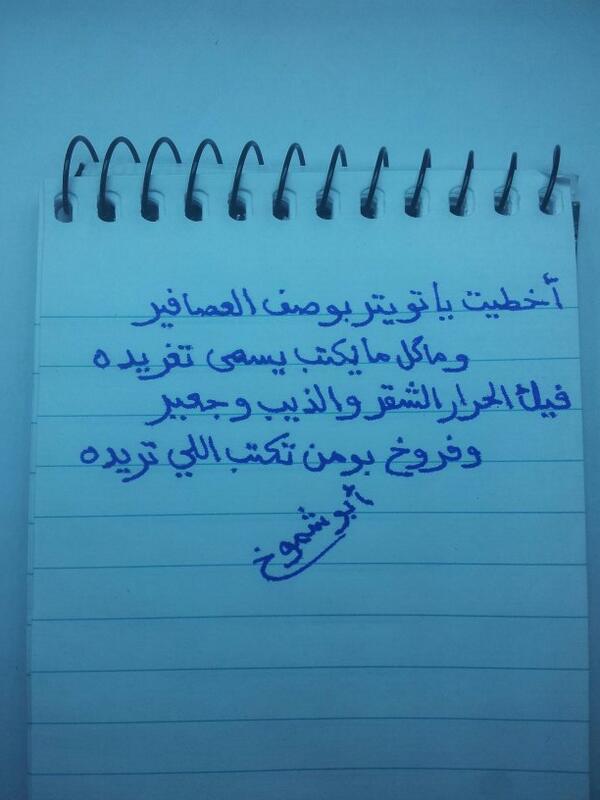 أخطيت ياتويتر بوصف العصافير
وماكل مايكتب يسمى تغريده
فيك الحرار الشقر والذيب وجعير
وفروخ بومن تكتب اللي تريده
أبو شموخ